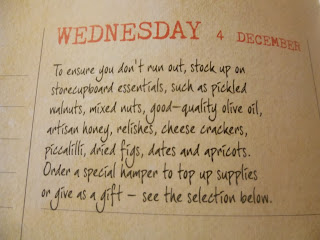 WEDNESDAY 4 DECEMBER
To ensure you don't run out, stock up on
storecupboard essentials, such as pickled
walnuts, mixed nuts, good-quality olive oil,
artisan honey, relishes, cheese crackers,
piccalilli, dried figs, dates and apricots.
Order a special hamper to top up supplies
or give as a gift – see the selection below.